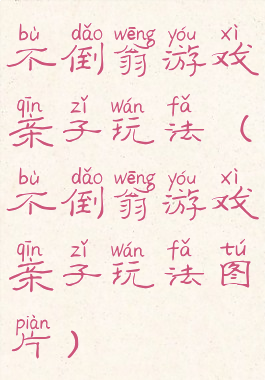 bù dǎo wēng yóu xì
不倒翁游戏
qīn zǐ wán fǎ
亲子玩法（
bù dǎo wēng yóu xì
不倒翁游戏
qīn zǐ wán fǎ tú
亲子玩法图
piàn
片）